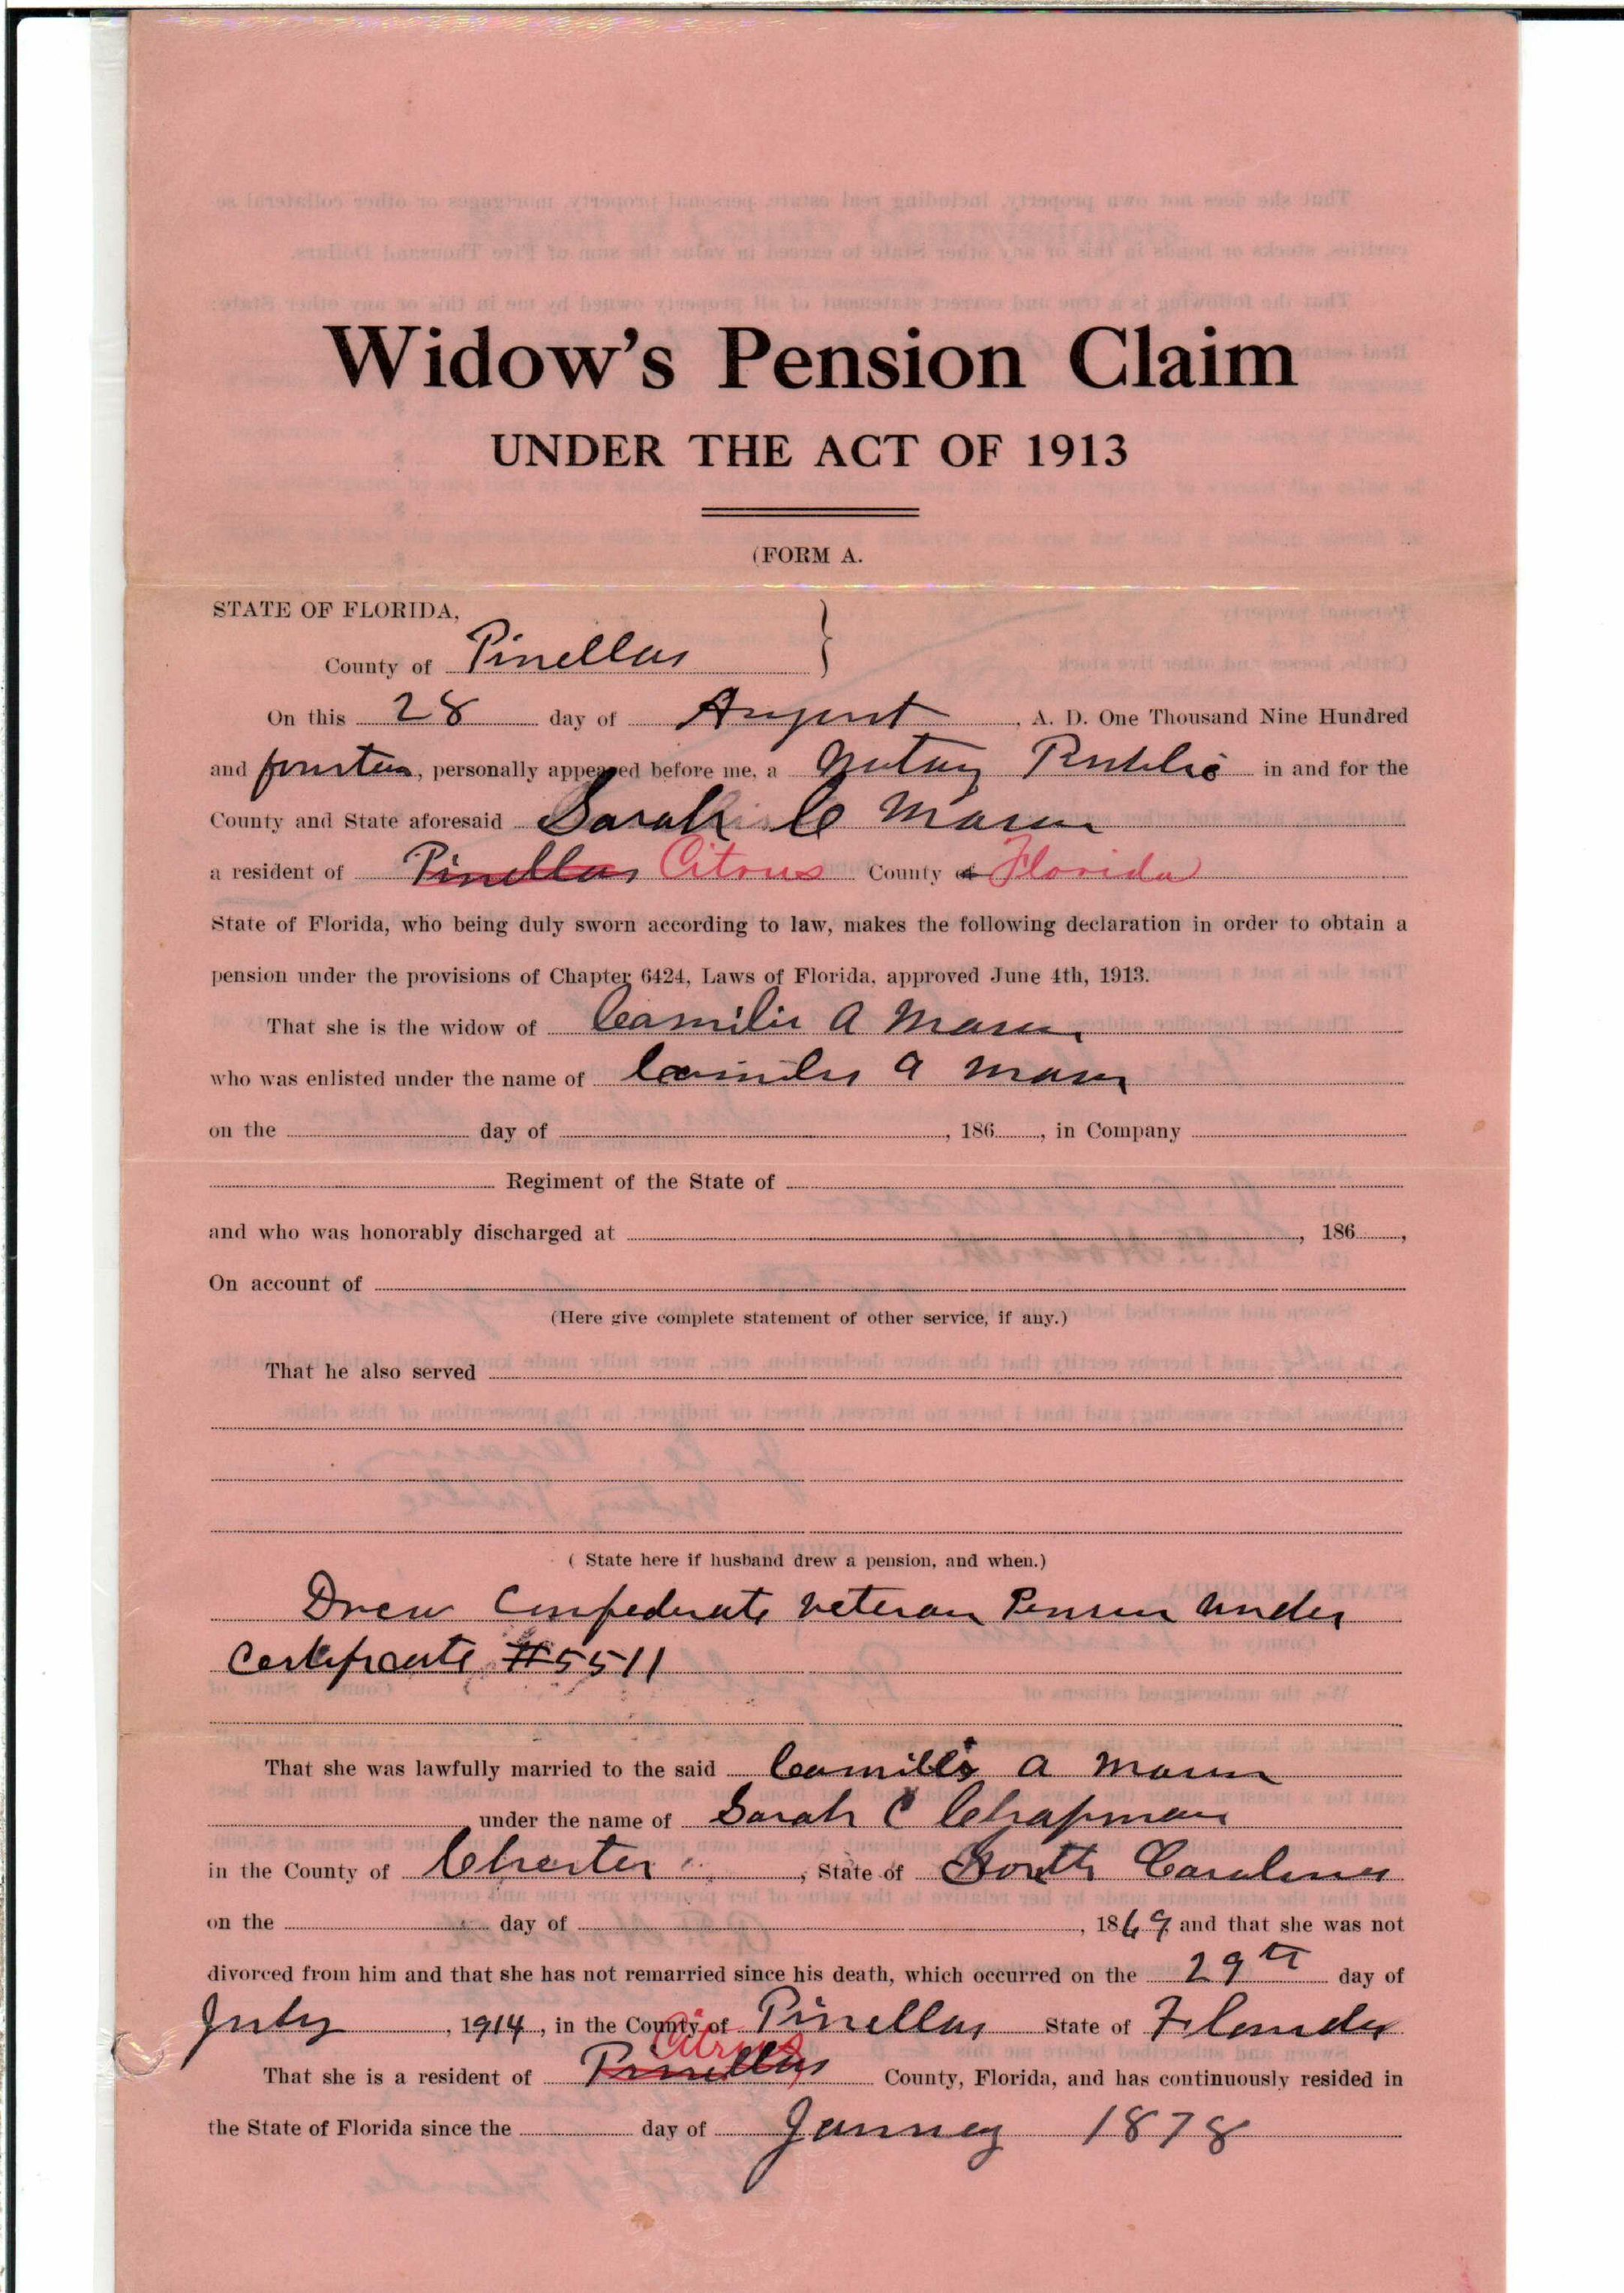 Widow's Pension Claim
UNDER THE ACT OF 1913
(FORM A.
STATE OF FLORIDA,
County of Pinellas
On this 28 day of August, A. D. One Thousand Nine Hundred
and fourteen, personally appeared before me, a Notary Public in and for the
County and State aforesaid Sarah C
a resident of Pinellas Citrus County of Florida
State of Florida, who being duly sworn according to law, makes the following declaration in order to obtain a
pension under the provisions of Chapter 6424, Laws of Florida, approved June 4th, 1913.
That she is the widow of A
who was enlisted under the name of A
on the day of , 186 , in Company
Regiment of the State of
and who was honorably discharged at , 186 ,
On account of
(Here give complete statement of other service, if any.)
That he also served
( State here if husband drew a pension, and when.)
Drew Confederate veteran Pension under
Certificate #5511
That she was lawfully married to the said A
under the name of Sarah C Chapman
in the County of Chester , State of South Carolina
on the day of , 1869 and that she was not
divorced from him and that she has not remarried since his death, which occurred on the 29th day of
July , 1914 , in the County of Pinellas State of Florida
Citrus
That she is a resident of Pinellas County, Florida, and has continuously resided in
the State of Florida since the day of January 1878